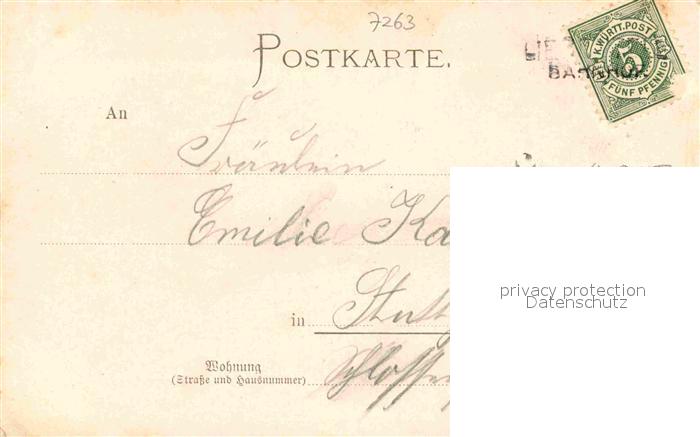 7263
POSTKARTE.
BAHNHOF
K. WÜRTT. POST
5
FÜNF PFENNIG
An
Fräulein
Emilie Ka
privacy protection
Datenschutz
in Stutt
Wohnung
(Straße und Hausnummer)